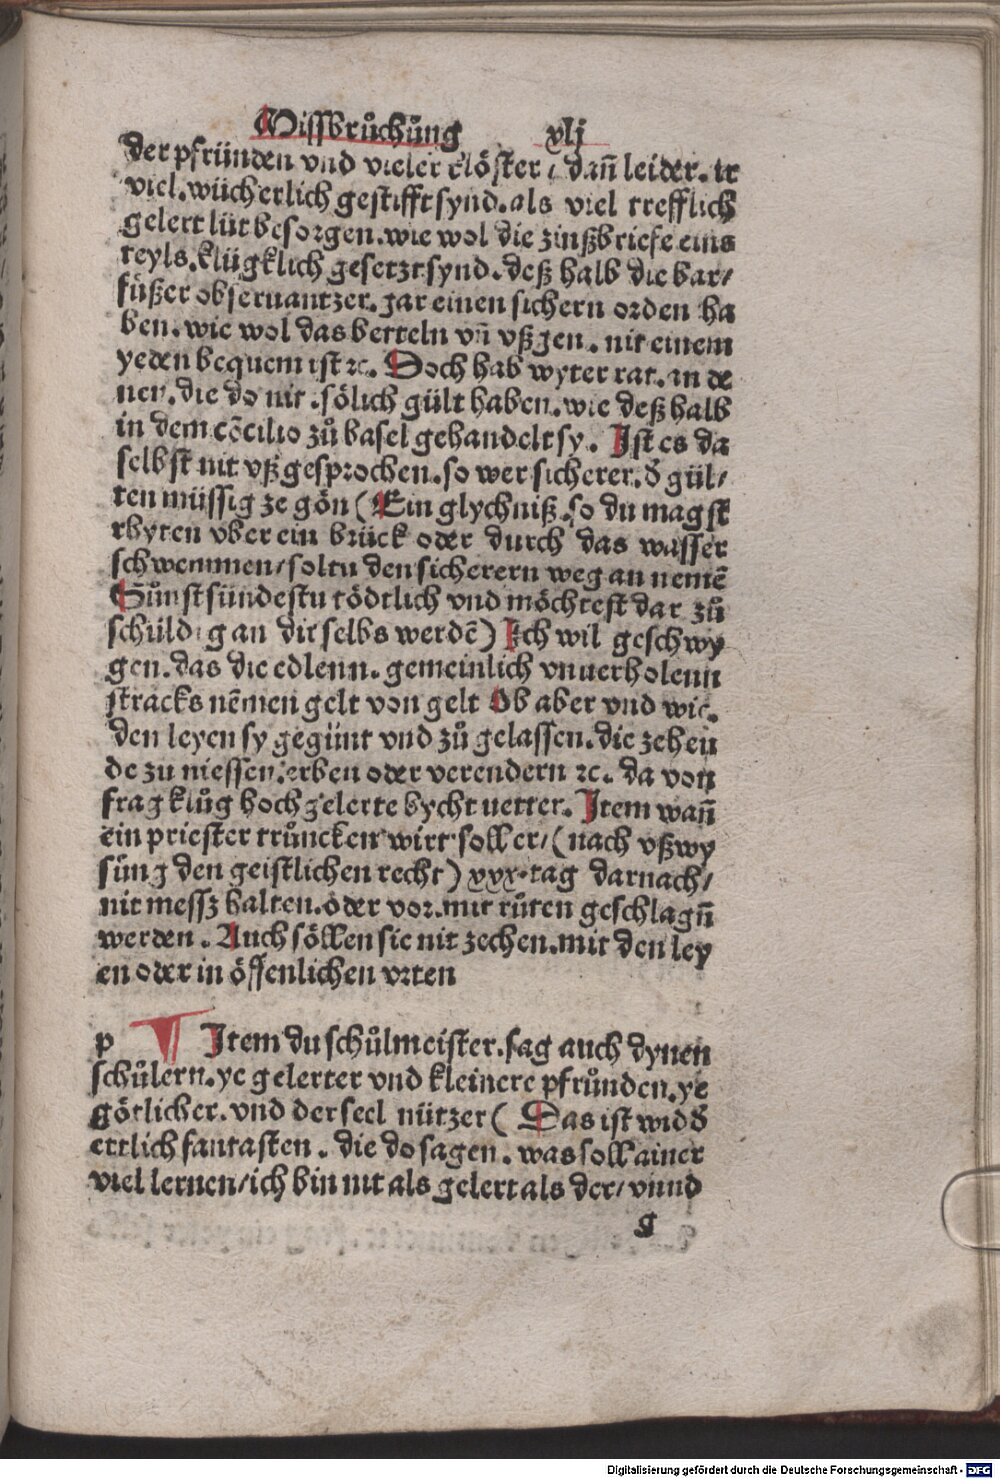 Missbrůchůng xlj
der pfründen vnd vieler clöster / dañ leider. ir
viel. wücherlich gestifft synd. als viel trefflich
gelert lüt besorgen. wie wol die zinßbriefe eins
teyls. klügklich gesetzt synd. deß halb die bar/
füßer obseruantzer. gar einen sichern orden ha
ben. wie wol das betteln vñ vßgen. nit einem
yeden bequem ist ⁊c. Doch hab wyter rat. an de
nen. die do nit. sölich gült haben. wie deß halb
in dem cõcilio zů basel gehandelt sy. Ist es da
selbst nit vßgesprochen. so wer sicherer. d̕ gül/
ten müssig ze gön ( Ein glychniß. so du magst
rhyten vber ein brück oder durch das wasser
schwemmen / soltu den sicherern weg an nemẽ
Sünst sündestu tödtlich vnd möchtest dar zů
schüldig an dir selbs werdẽ ) Ich wil geschwy
gen. das die edlenn. gemeinlich vnuerholenn
stracks nẽmen gelt von gelt Ob aber vnd wie.
den leyen sy gegünt vnd zů gelassen. die zehen
de zu niessen. erben oder verendern ⁊c. da von
frag klůg hochgelerte bycht uetter. Item wañ
ein priester trůncken wirt soll er / ( nach vßwy
süng den geistlichen recht ) xxx. tag darnach /
nit messz halten. oder vor. mit růten geschlagñ
werden. Auch söllen sie nit zechen. mit den ley
en oder in öffenlichen vrten
p ¶ Item du schůlmeister. sag auch dynen
schůlern. ye gelerter vnd kleinere pfrůnden. ye
götlicher. vnd der seel nützer ( Das ist widd̕
ettlich fantasten. die do sagen. was soll ainer
viel lernen / ich bin nit als gelert als der / vnnd
g
Digitalisierung gefördert durch die Deutsche Forschungsgemeinschaft - DFG